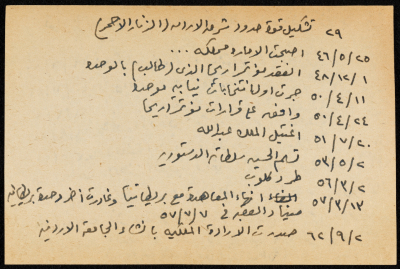 ٢٩ تشكيل قوة حدود شرق الاردن (الزنار الاحمر)
٤٦/٥/٢٥ اصبحت الامارة مملكة ...
٤٨/١٢/١ انعقد مؤتمر اريحا الذي (طالب) بالوحدة
٥٠/٤/١١ جرت اول انتخابات نيابية موحدة
٥٠/٤/٢٤ وافقه على قرارات مؤتمر اريحا
٥١/٧/٢٠ اغتيل الملك عبدالله
٥٣/٥/٢ تسلم الحسين سلطاته الدستورية
٥٦/٣/٢ طرد كلوب
٥٧/٣/١٣ انهاء المعاهدة مع بريطانيا وغادرت اخر وحدة بريطانية
ميناء العقبة في ٥٧/٧/٧
٦٢/٩/٢ صدرت الارادة الملكية بانشاء الجامعة الاردنية